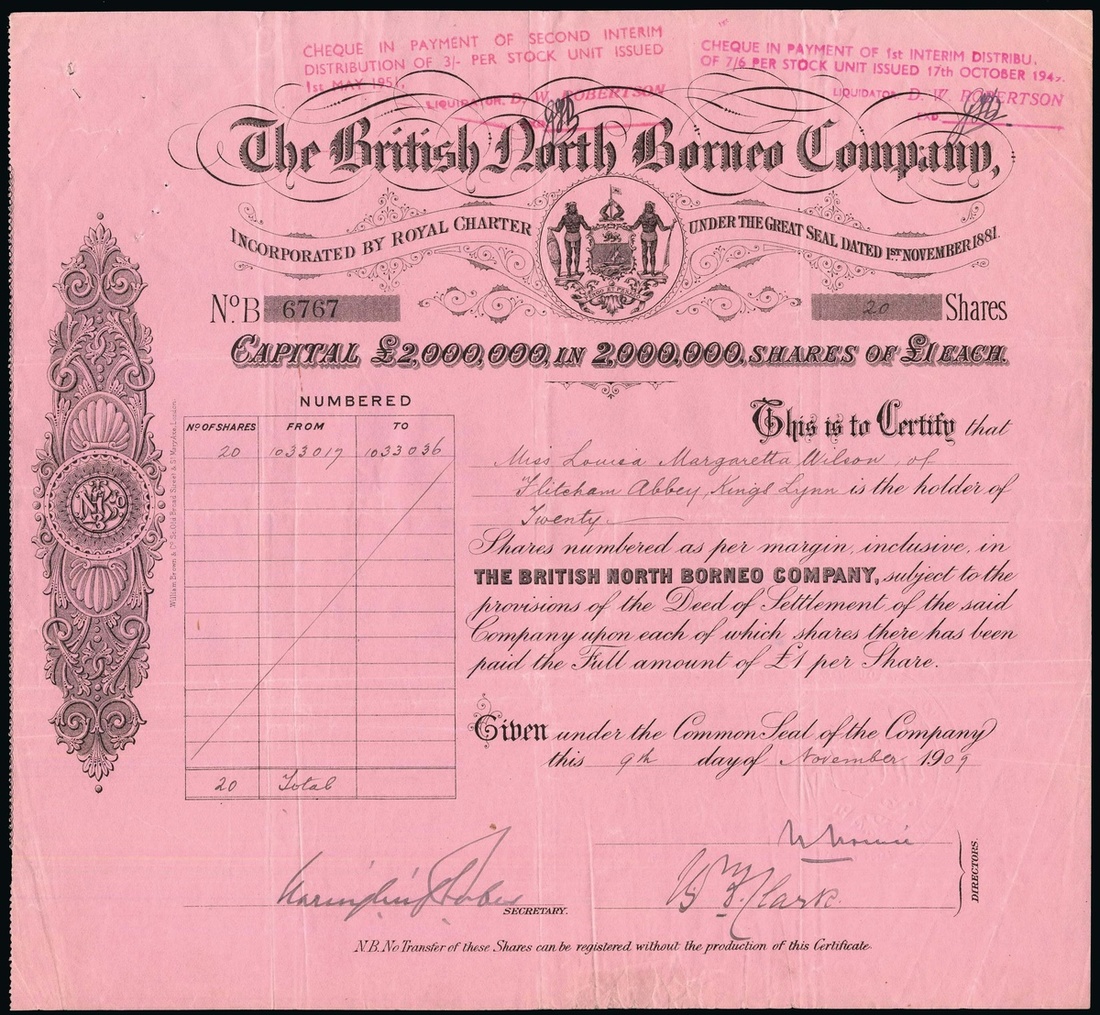 CHEQUE IN PAYMENT OF SECOND INTERIM
DISTRIBUTION OF 3/- PER STOCK UNIT ISSUED
1st MAY 1951.
LIQUIDATOR. D. W. ROBERTSON
CHEQUE IN PAYMENT OF 1st INTERIM DISTRIBU.
OF 7/6 PER STOCK UNIT ISSUED 17th OCTOBER 194
LIQUIDATOR D. W. ROBERTSON
The British North Borneo Company,
INCORPORATED BY ROYAL CHARTER
UNDER THE GREAT SEAL DATED 1ST NOVEMBER 1881.
No. B 6767
20 Shares
CAPITAL £2,000,000, IN 2,000,000, SHARES OF £1 EACH.
NUMBERED
No OF SHARES FROM TO
20 1033017 1033036
20 Total
William Brown & Co. Ld. Old Broad Street & St Mary Axe, London.
This is to Certify that
Miss Louisa Margaretta Wilson, of
Flitcham Abbey, Kings Lynn is the holder of
Twenty
Shares numbered as per margin, inclusive, in
THE BRITISH NORTH BORNEO COMPANY, subject to the
provisions of the Deed of Settlement of the said
Company upon each of which shares there has been
paid the Full amount of £1 per Share.
Given under the Common Seal of the Company
this 9th day of November 1909
Wm Clark.
DIRECTORS.
SECRETARY.
N.B. No Transfer of these Shares can be registered without the production of this Certificate.